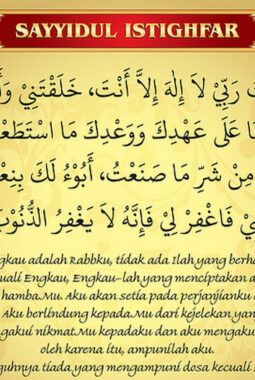 SAYYIDUL ISTIGHFAR
رَبِّيْ لاَ إِلٰهَ إِلاَّ أَنْتَ، خَلَقْتَنِيْ
عَلَى عَهْدِكَ وَوَعْدِكَ مَا
مِنْ شَرِّ مَا صَنَعْتُ، أَبُوْءُ لَكَ
فَاغْفِرْ لِيْ فَإِنَّهُ لاَ يَغْفِرُ الذُّنُوْبَ
adalah Rabbku, tidak ada Ilah yang
Engkau, Engkau-lah yang menciptakan
hamba.Mu. Aku akan setia pada perjanjianku
Aku berlindung kepada.Mu dari kejelekan yang
nikmat.Mu kepadaku dan aku
oleh karena itu, ampunilah aku.
tiada yang mengampuni dosa